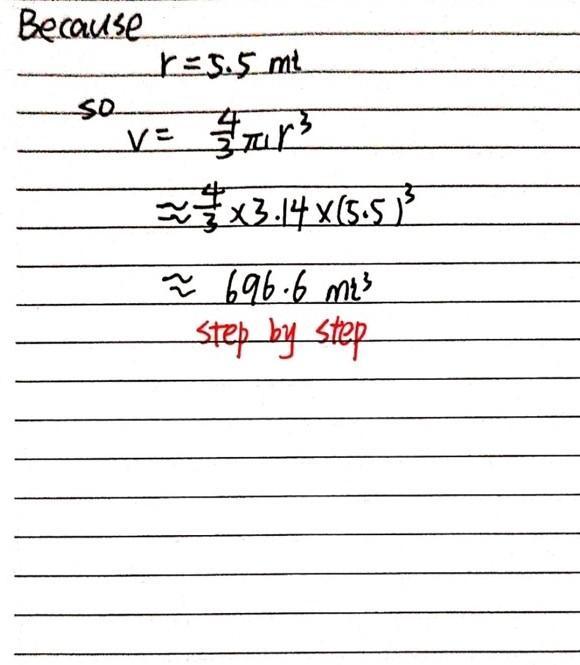 Because
r = 5.5 mi
so
V = 4/3 πr³
≈ 4/3 × 3.14 × (5.5)³
≈ 696.6 mi³
step by step